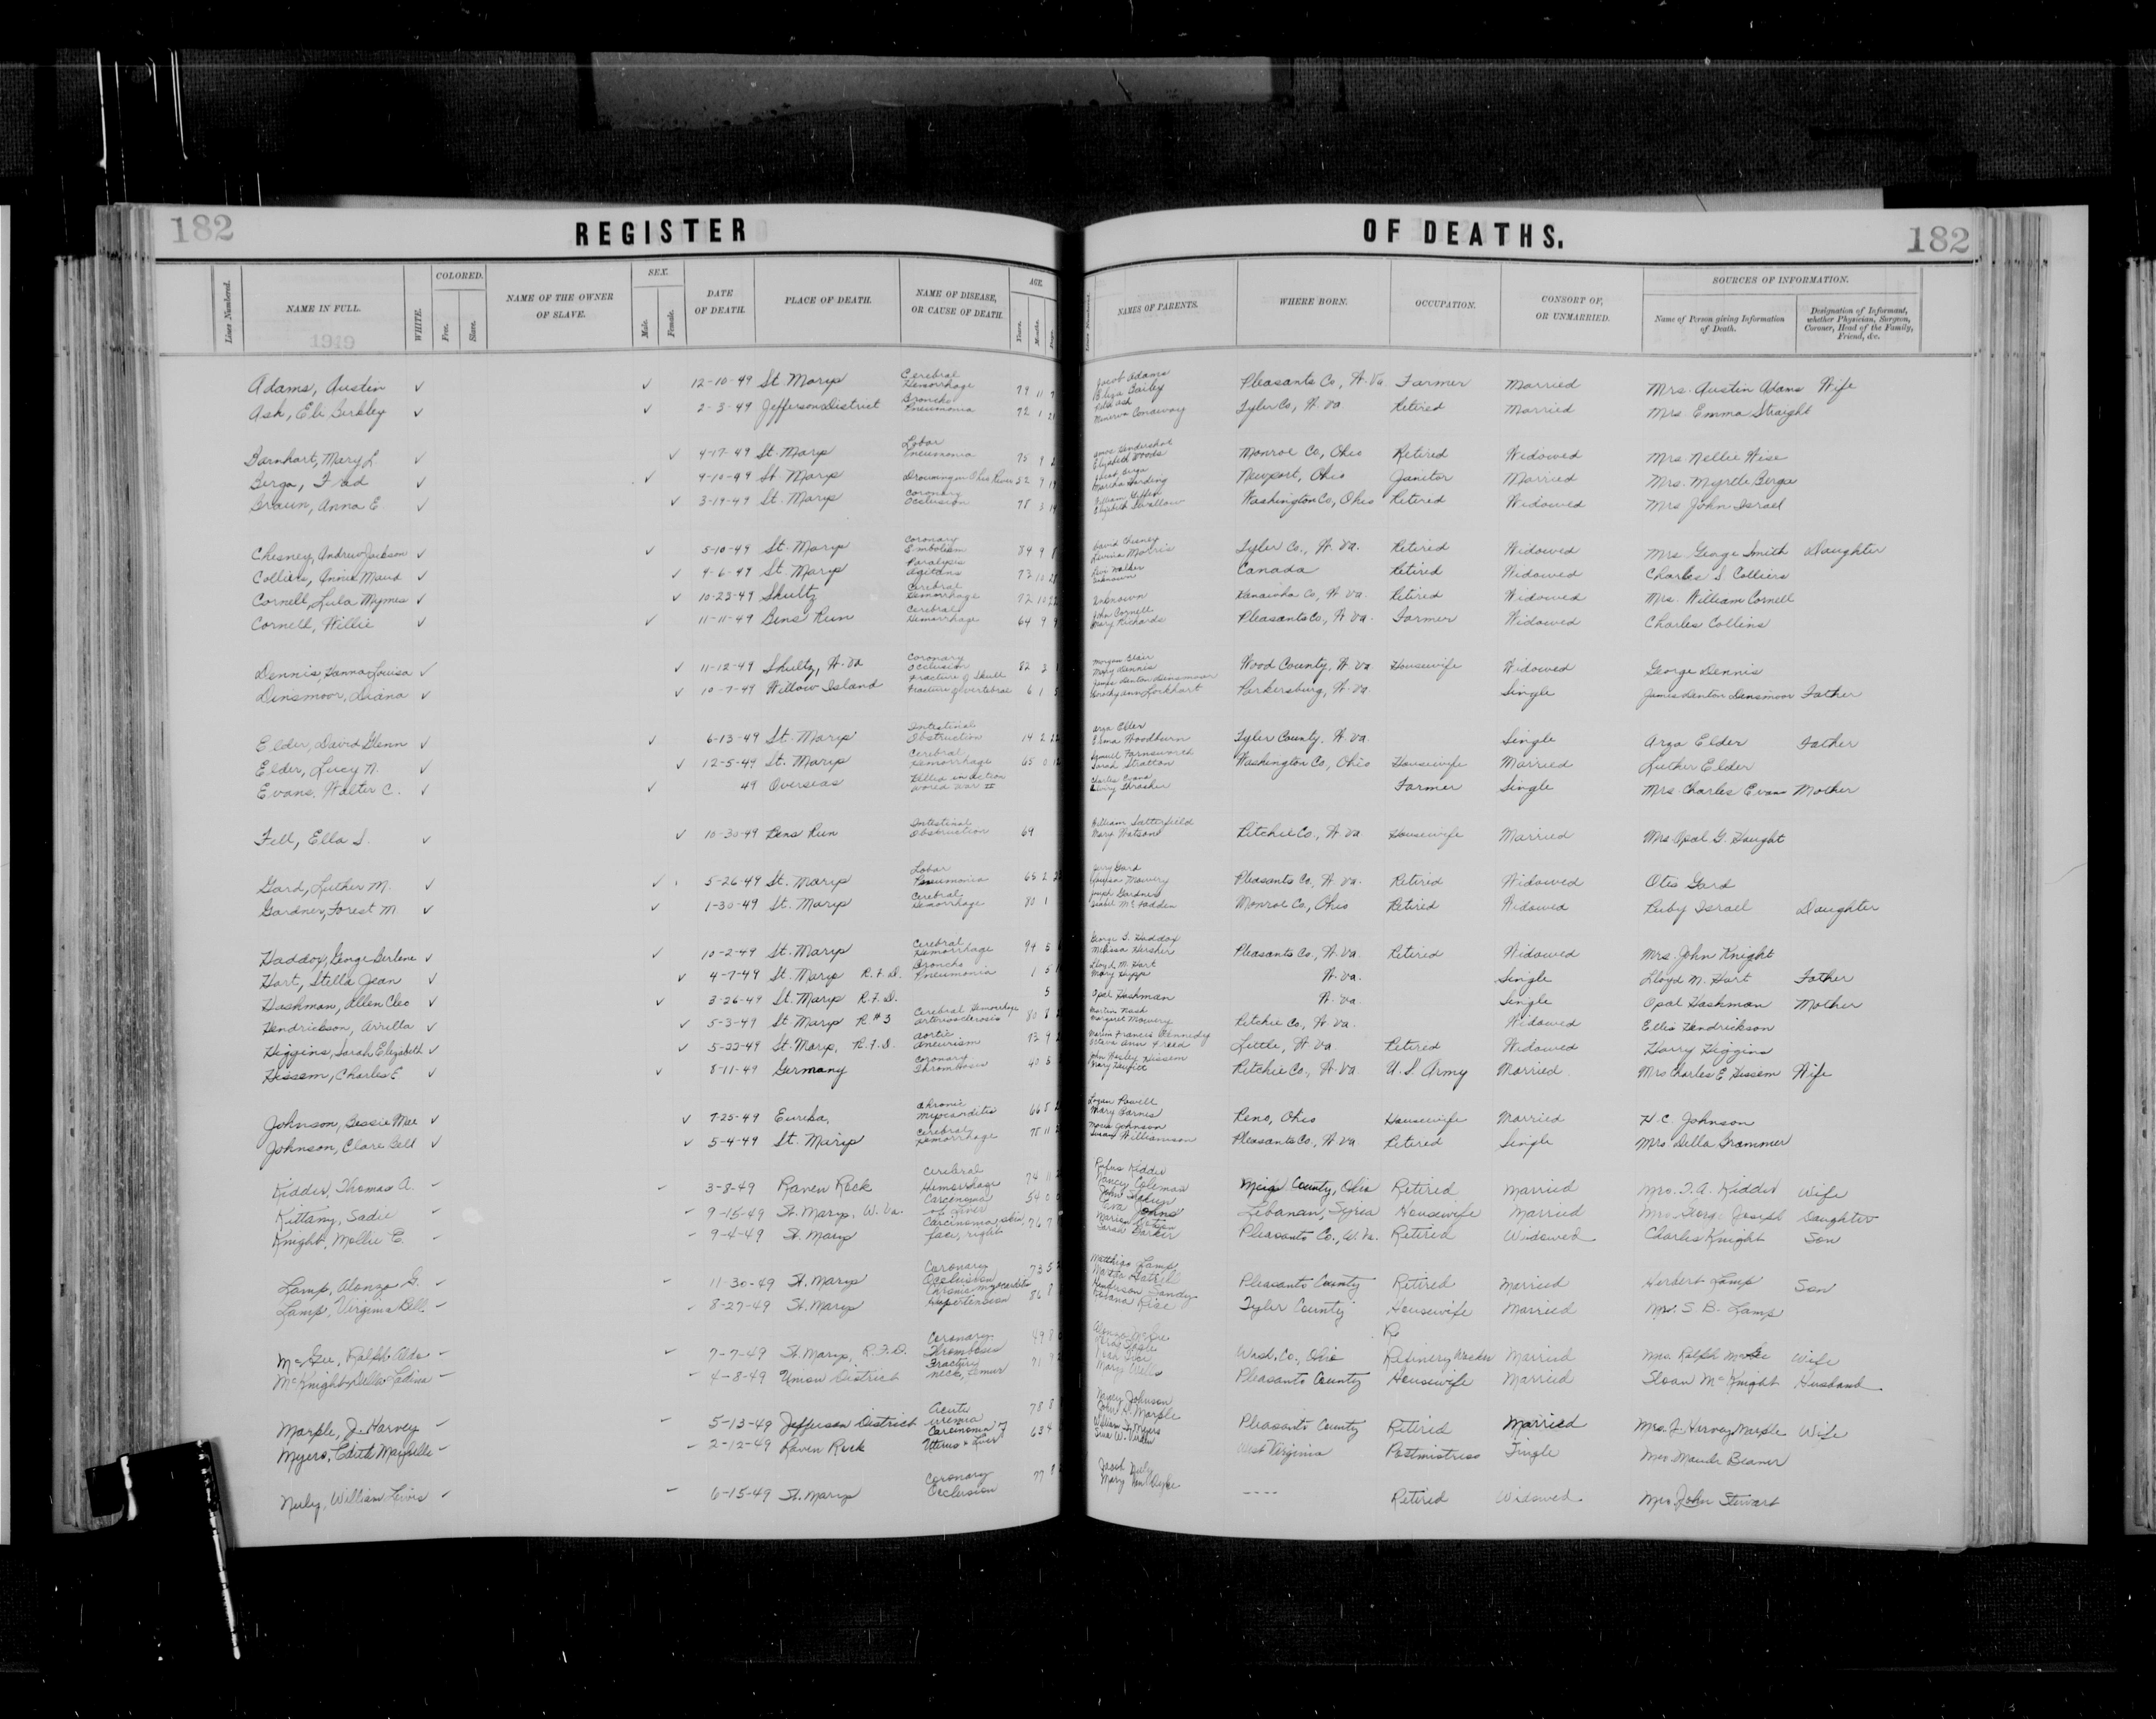 182 REGISTER OF DEATHS. 182
Lines Numbered. NAME IN FULL. WHITE. COLORED. Free. Slave. NAME OF THE OWNER OF SLAVE. SEX. Male. Female. DATE OF DEATH. PLACE OF DEATH. NAME OF DISEASE, OR CAUSE OF DEATH. AGE. Years. Months. Days. Lines Numbered. NAMES OF PARENTS. WHERE BORN. OCCUPATION. CONSORT OF, OR UNMARRIED. SOURCES OF INFORMATION. Name of Person giving Information of Death. Designation of Informant, whether Physician, Surgeon, Coroner, Head of the Family, Friend, &c.
Adams, Austin ✓ ✓ 12-10-49 St. Marys Cerebral Hemorrhage 79 11 7 Jacob Adams Eliza Bailey Pleasants Co, W. Va. Farmer Married Mrs. Austin Adams Wife
Ash, Eli Berkley ✓ ✓ 2-3-49 Jefferson District Broncho Pneumonia 72 1 21 Ash Minerva Conaway Tyler Co, W. Va Retired Married Mrs Emma Straight
Barnhart, Mary L ✓ ✓ 4-17-49 St. Marys Lobar Pneumonia 75 9 Amos Hendershot Elizabeth Woods Monroe Co, Ohio Retired Widowed Mrs Nellie Wise
Berga, Fred ✓ ✓ 4-10-49 St Marys Drowning in Ohio River 52 9 Martha Harding Newport, Ohio Janitor Married Mrs. Myrtle Berga
Braun, Anna E. ✓ ✓ 3-19-49 St. Marys Coronary Occlusion 78 3 William Elizabeth Swallow Washington Co, Ohio Retired Widowed Mrs John Israel
Chesney, Andrew Jackson ✓ ✓ 5-10-49 St. Marys Coronary Embolism 84 9 8 David Chesney Levina Morris Tyler Co., W. Va. Retired Widowed Mrs George Smith Daughter
Colliers, Annie Maud ✓ ✓ 4-6-49 St Marys Paralysis Agitans 73 10 28 Levi Walker Unknown Canada Retired Widowed Charles S. Colliers
Cornell, Lula Mymes ✓ ✓ 10-23-49 Shultz Cerebral Hemorrhage 72 10 22 Unknown Kanawha Co, W Va. Retired Widowed Mrs. William Cornell
Cornell, Willie ✓ ✓ 11-11-49 Bens Run Cerebral Hemorrhage 64 9 9 John Cornell Mary Richards Pleasants Co, W Va. Farmer Widowed Charles Collins
Dennis, Hanna Louisa ✓ ✓ 11-12-49 Shultz, W. Va Coronary Occlusion 82 3 Morgan Blair Mary Dennis Wood County, W. Va. Housewife Widowed George Dennis
Densmoor, Diana ✓ ✓ 10-7-49 Willow Island Fracture of Skull Fracture of vertebral 6 1 5 James Denton Densmoor Dorothy Ann Lockhart Parkersburg, W. Va. Single James Denton Densmoor Father
Elder, David Glenn ✓ ✓ 6-13-49 St. Marys Intestinal Obstruction 14 2 22 Arza Elder Erma Woodburn Tyler County, W. Va. Single Arza Elder Father
Elder, Lucy N. ✓ ✓ 12-5-49 St. Marys Cerebral Hemorrhage 65 0 12 Samuel Farnsworth Sarah Stratton Washington Co, Ohio Housewife Married Luther Elder
Evans, Walter C. ✓ ✓ 49 Overseas Killed in Action World War II Charles Evans Thrasher Farmer Single Mrs Charles Evans Mother
Fell, Ella S. ✓ ✓ 10-30-49 Bens Run Intestinal Obstruction 69 William Satterfield Mary Watson Ritchie Co., W Va Housewife Married Mrs Opal G. Haught
Gard, Luther M. ✓ ✓ 5-26-49 St. Marys Lobar Pneumonia 65 2 Gard Louisa Mowery Pleasants Co, W. Va. Retired Widowed Otis Gard
Gardner, Forest M. ✓ ✓ 1-30-49 St. Marys Cerebral Hemorrhage 80 1 Joseph Gardner McFadden Monroe Co., Ohio Retired Widowed Ruby Israel Daughter
Haddox, George Gerlene ✓ ✓ 10-2-49 St. Marys Cerebral Hemorrhage 94 5 George S. Haddox Melissa Hersher Pleasants Co., W. Va. Retired Widowed Mrs. John Knight
Hart, Stella Jean ✓ ✓ 4-7-49 St. Marys R.F.D. Broncho Pneumonia 1 5 Lloyd M. Hart Mary W. Va. Single Lloyd M. Hart Father
Hashman, Allen Cleo ✓ ✓ 3-26-49 St. Marys R.F.D. 5 Opal Hashman W. Va. Single Opal Hashman Mother
Hendrickson, Arrella ✓ ✓ 5-3-49 St Marys R #3 Cerebral Hemorrhage Arteriosclerosis 80 8 Martin Nash Margaret Mowery Ritchie Co, W Va. Widowed Ellis Hendrickson
Higgins, Sarah Elizabeth ✓ ✓ 5-22-49 St. Marys, R.F.D. Aortic Aneurism 83 9 Francis Kennedy Ann Freed Little, W Va. Retired Widowed Harry Higgins
Hissem, Charles E ✓ ✓ 8-11-49 Germany Coronary Thrombosis 40 5 John Wesley Hissem Mary Ritchie Co., W. Va. U.S Army Married Mrs Charles E Hissem Wife
Johnson, Bessie Mae ✓ ✓ 7-25-49 Eureka, Chronic Myocarditis 66 5 Logan Powell Mary Barnes Reno, Ohio Housewife Married H. C. Johnson
Johnson, Clare Bell ✓ ✓ 5-4-49 St. Marys Cerebral Hemorrhage 78 11 Johnson Susan Williamson Pleasants Co., W. Va Retired Single Mrs Della Grammer
Kidder, Thomas A. 3-8-49 Raven Rock Cerebral Hemorrhage 74 11 Rufus Kidder Nancy Coleman Meigs County, Ohio Retired Married Mrs. T. A. Kidder Wife
Kittany, Sadie 9-15-49 St. Marys, W. Va. Carcinoma of Liver 54 0 0 John Eva Johns Lebanan, Syria Housewife Married Mrs George Joseph Daughter
Knight, Mollie C. 9-4-49 St. Marys Carcinoma, skin face, right 76 7 Marion Sarah Barker Pleasants Co., W. Va. Retired Widowed Charles Knight Son
Lamp, Alonzo G. 11-30-49 St. Marys Coronary Occlusion 73 5 Matthias Lamp Pleasants County Retired Married Herbert Lamp Son
Lamp, Virginia Bell 8-27-49 St. Marys Chronic myocarditis hypertension 86 8 Henderson Gandy Rice Tyler County Housewife Married Mr. S. B. Lamp
Re
McGee, Ralph Aldo 7-7-49 St. Marys, R.F.D. Coronary Thrombosis 49 8 Wash. Co., Ohio Refinery Worker Married Mrs. Ralph McGee Wife
McKnight, Della Ladina 4-8-49 Union District Fracture neck, femur 71 Mary Wells Pleasants County Housewife Married Sloan McKnight Husband
Marple, J. Harvey 5-13-49 Jefferson District Acute uremia 78 8 Nancy Johnson John H. Marple Pleasants County Retired Married Mrs. J. Harvey Marple Wife
Myers, Edith MayBelle 2-12-49 Raven Rock Carcinoma of Uterus & Liver 63 4 William Myers West Virginia Postmistress Single Mrs Maude Beaver
Nuly, William Lewis 6-15-49 St. Marys Coronary Occlusion 77 8 Jacob Nuly Mary Van Dyke ---- Retired Widowed Mrs. John Stewart